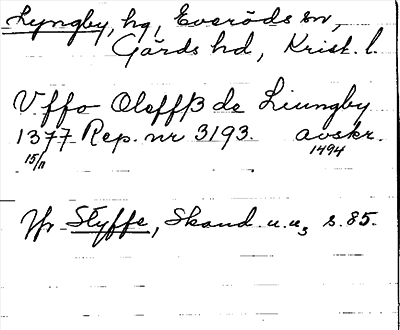 Lyngby, hg, Everöds sn,
Gärds hd, Krist. l.
Vffo Oleffß de Liungby
1377 Rep. nr 3193. avskr.
15/11 1494
Jfr Styffe, Skand. u. u, s. 85.